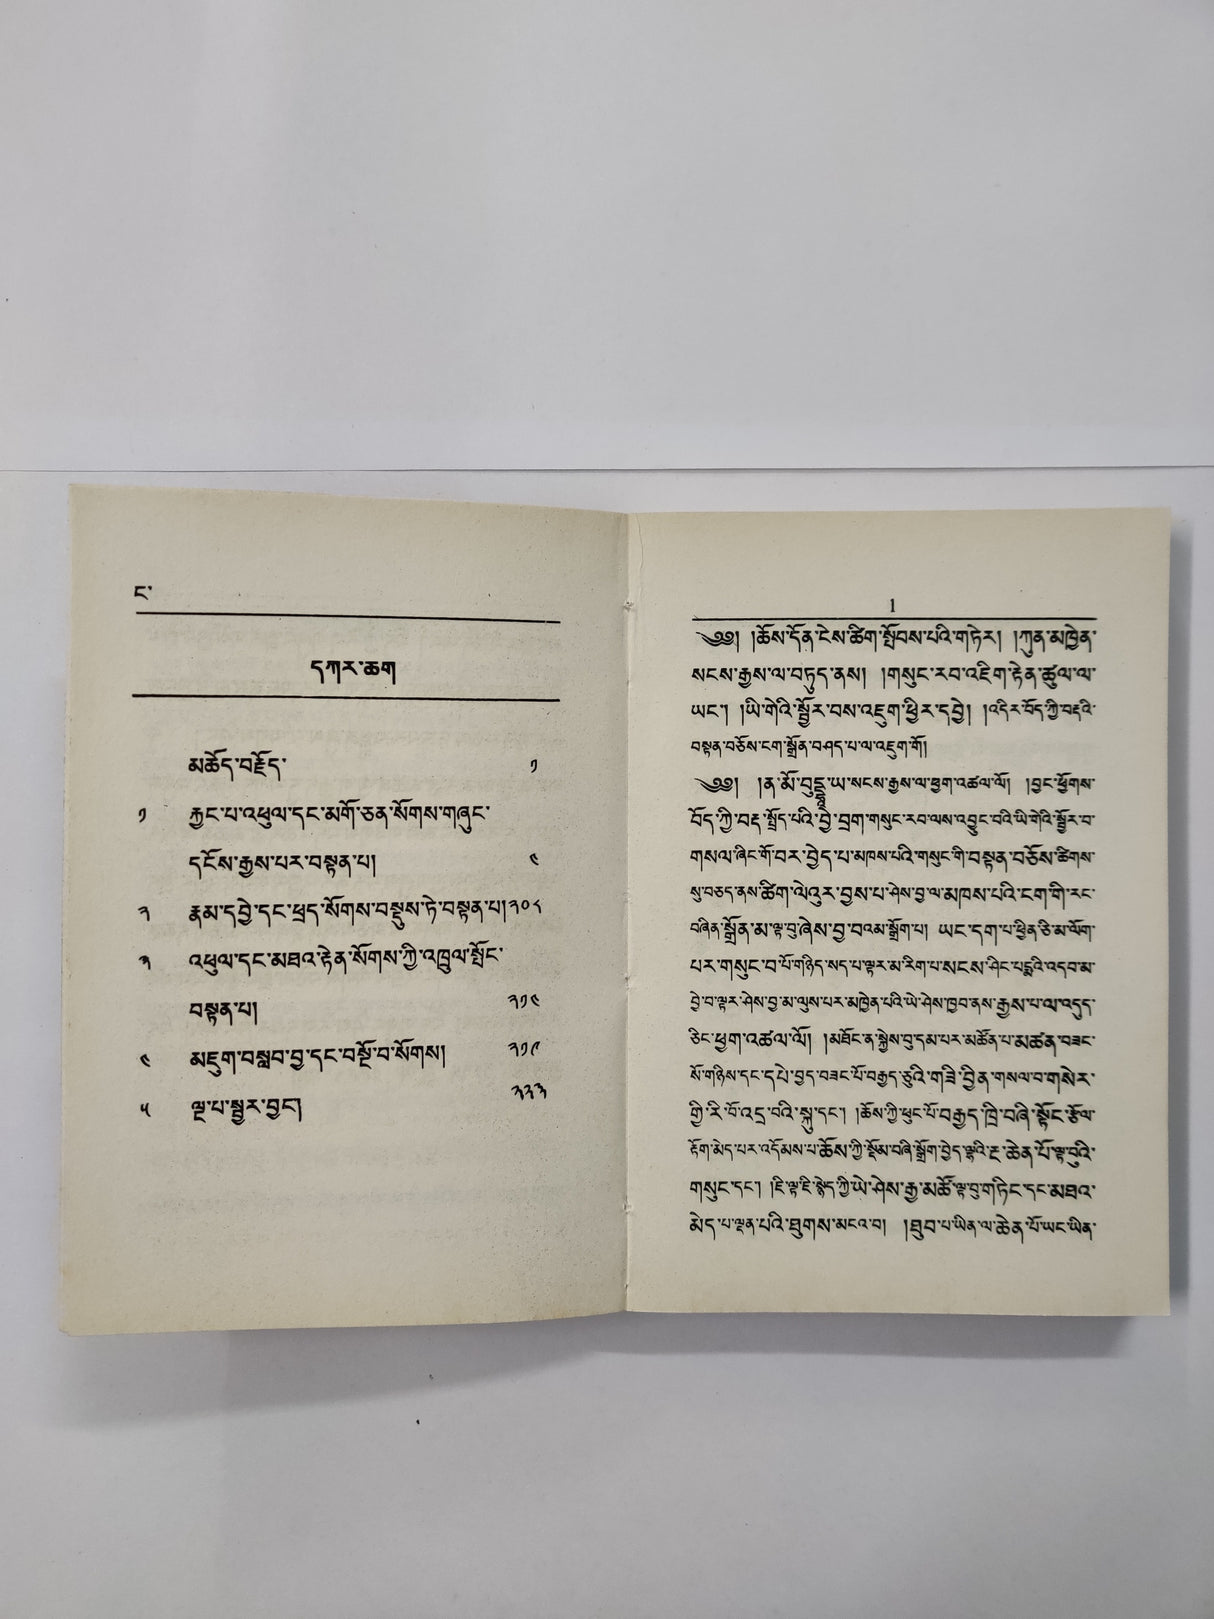 ང་
དཀར་ཆག
མཆོད་བརྗོད་ ༡
༡ རྐྱང་པ་འཕུལ་དང་མགོ་ཅན་སོགས་གཞུང་
དངོས་རྒྱས་པར་བསྟན་པ། ༤
༢ རྣམ་དབྱེ་དང་ཕྲད་སོགས་བསྡུས་ཏེ་བསྟན་པ།༢༠༨
༣ འཕུལ་དང་མཐའ་རྟེན་སོགས་ཀྱི་འཁྲུལ་སྤོང་
བསྟན་པ། ༢༡༤
༤ མཇུག་བསླབ་བྱ་དང་བསྔོ་བ་སོགས། ༢༡༩
༥ ལྔ་པ་སྦྱར་བྱང། ༢༢༣
1
༄༅། །ཆོས་དོན་ངེས་ཚིག་སྤོབས་པའི་གཏེར། །ཀུན་མཁྱེན་
སངས་རྒྱས་ལ་བཏུད་ནས། །གསུང་རབ་འཇིག་རྟེན་ཚུལ་ལ་
ཡང༌། །ཡི་གེའི་སྦྱོར་བས་འཇུག་ཕྱིར་དབྱེ། །འདིར་བོད་ཀྱི་བརྡའི་
བསྟན་བཅོས་ངག་སྒྲོན་བཤད་པ་ལ་འཇུག་གོ།
༄༅། །ན་མོ་བུདྡྷཱ་ཡ་སངས་རྒྱས་ལ་ཕྱག་འཚལ་ལོ། །བྱང་ཕྱོགས་
བོད་ཀྱི་བརྡ་སྤྲོད་པའི་བྱེ་བྲག་གསུང་རབ་ལས་འབྱུང་བའི་ཡི་གེའི་སྦྱོར་བ་
གསལ་ཞིང་གོ་བར་བྱེད་པ་མཁས་པའི་གསུང་གི་བསྟན་བཅོས་ཚིགས་
སུ་བཅད་ནས་ཚིག་ལེའུར་བྱས་པ་ཤེས་བྱ་ལ་མཁས་པའི་ངག་གི་རང་
བཞིན་སྒྲོན་མ་ལྟ་བུ་ཞེས་བྱ་བའམ་སྒྲོག་པ། ཡང་དག་པ་ཕྱིན་ཅི་མ་ལོག་
པར་གསུང་བ་པོ་གཉིད་སད་པ་ལྟར་མ་རིག་པ་སངས་ཤིང་པདྨའི་འདབ་མ་
བྱེ་བ་ལྟར་ཤེས་བྱ་མ་ལུས་པར་མཁྱེན་པའི་ཡེ་ཤེས་ཁྱབ་ནས་རྒྱས་པ་ལ་འདུད་
ཅིང་ཕྱག་འཚལ་ལོ། །མཐོང་ན་སྐྱེས་བུ་དམ་པར་མཚོན་པ་མཚན་བཟང་
སོ་གཉིས་དང་དཔེ་བྱད་བཟང་པོ་བརྒྱད་ཅུའི་གཟི་བྱིན་གསལ་བ་གསེར་
གྱི་རི་བོ་འདྲ་བའི་སྐུ་དང༌། །ཆོས་ཀྱི་ཕུང་པོ་བརྒྱད་ཁྲི་བཞི་སྟོང་རྩོལ་
རྟོག་མེད་པར་འདོམས་པ་ཆོས་ཀྱི་སྡོམ་བཞི་སྒྲོག་བྱེད་ལྷའི་རྔ་ཆེན་པོ་ལྟ་བུའི་
གསུང་དང༌། །ཇི་ལྟ་ཇི་སྙེད་ཀྱི་ཡེ་ཤེས་རྒྱ་མཚོ་ལྟ་བུ་གཏིང་དང་མཐའ་
མེད་པ་ལྡན་པའི་ཐུགས་མངའ་བ། །ཐུབ་པ་ཡིན་ལ་ཆེན་པོ་ཡང་ཡིན་